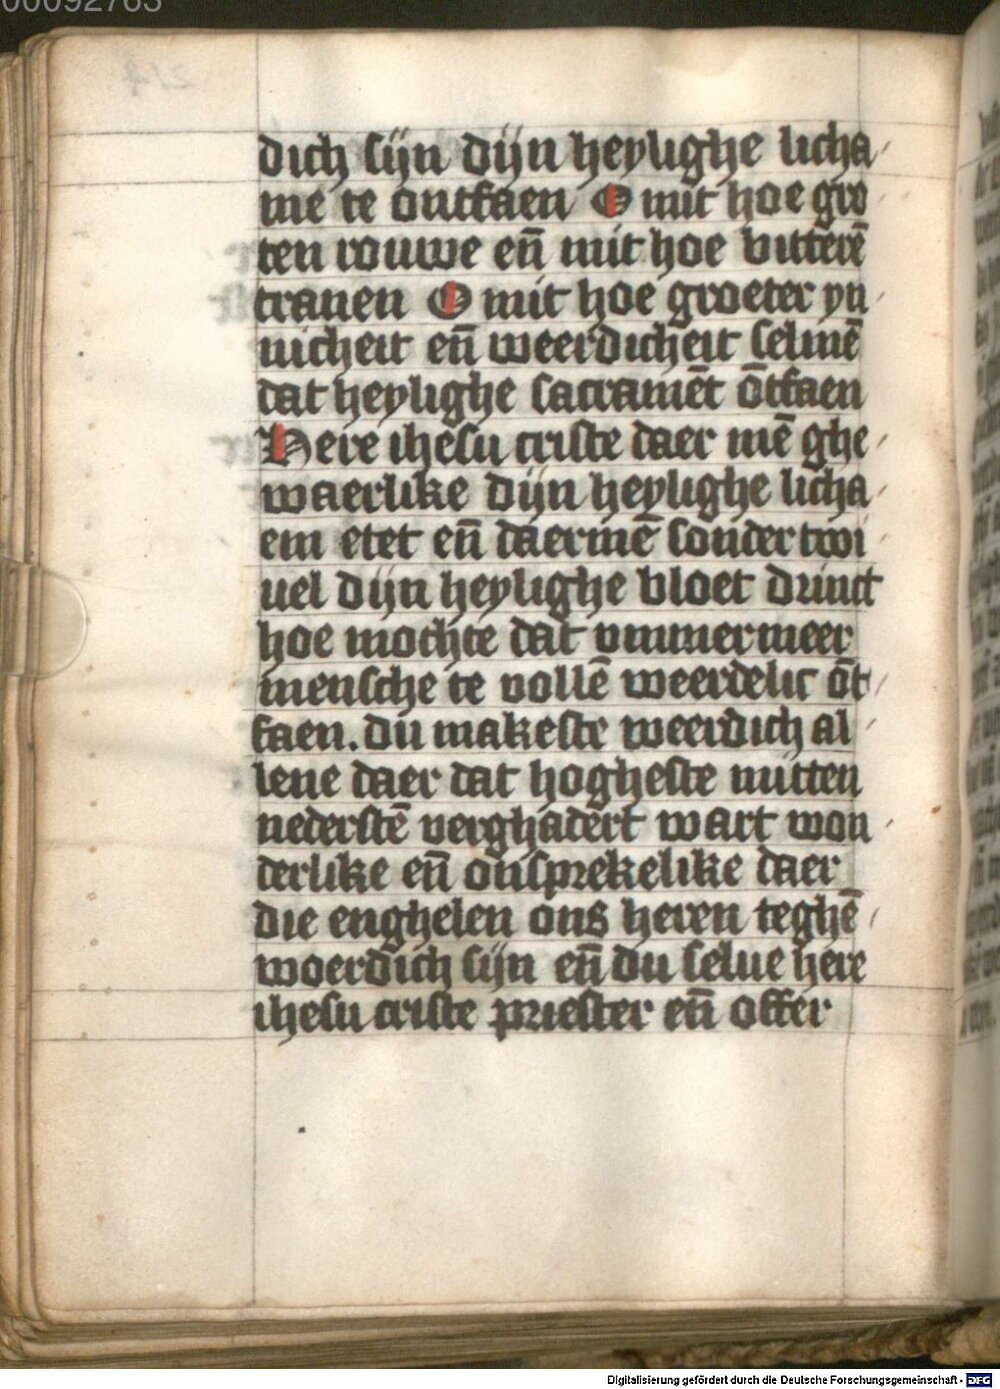 00092763
dich sijn dijn heylighe licha
me te ontfaen O mit hoe gro
ten rouwe en̄ mit hoe bitterē
tranen O mit hoe groeter yn
nicheit en̄ weerdicheit selmē
dat heylighe sacramēt ōtfaen
Here ihesu criste daer mē ghe
waerlike dijn heylighe licha
em etet en̄ daermē sonder twi
uel dijn heylighe bloet drinct
hoe mochte dat ummermeer
mensche te vollē weerdelic ōt
faen. du makeste weerdich al
lene daer dat hogheste mitten
nederstē verghadert wart won
derlike en̄ onsprekelike daer
die enghelen ons heren teghē
woerdich sijn en̄ du selue here
ihesu criste priester en̄ offer
Digitalisierung gefördert durch die Deutsche Forschungsgemeinschaft - DFG